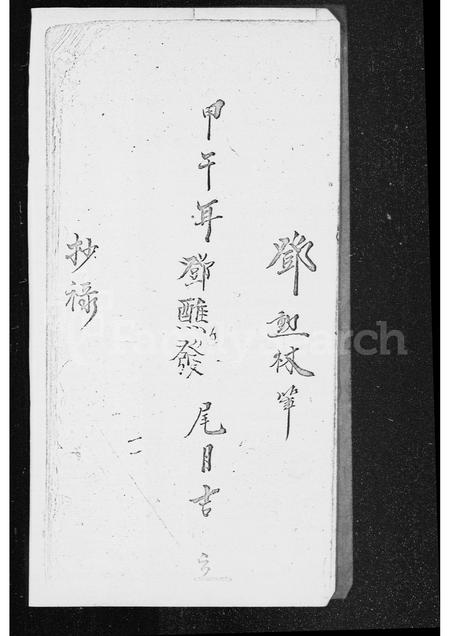 鄧勲林筆
甲午年鄧醮發尾月吉立
抄禄
FamilySearch